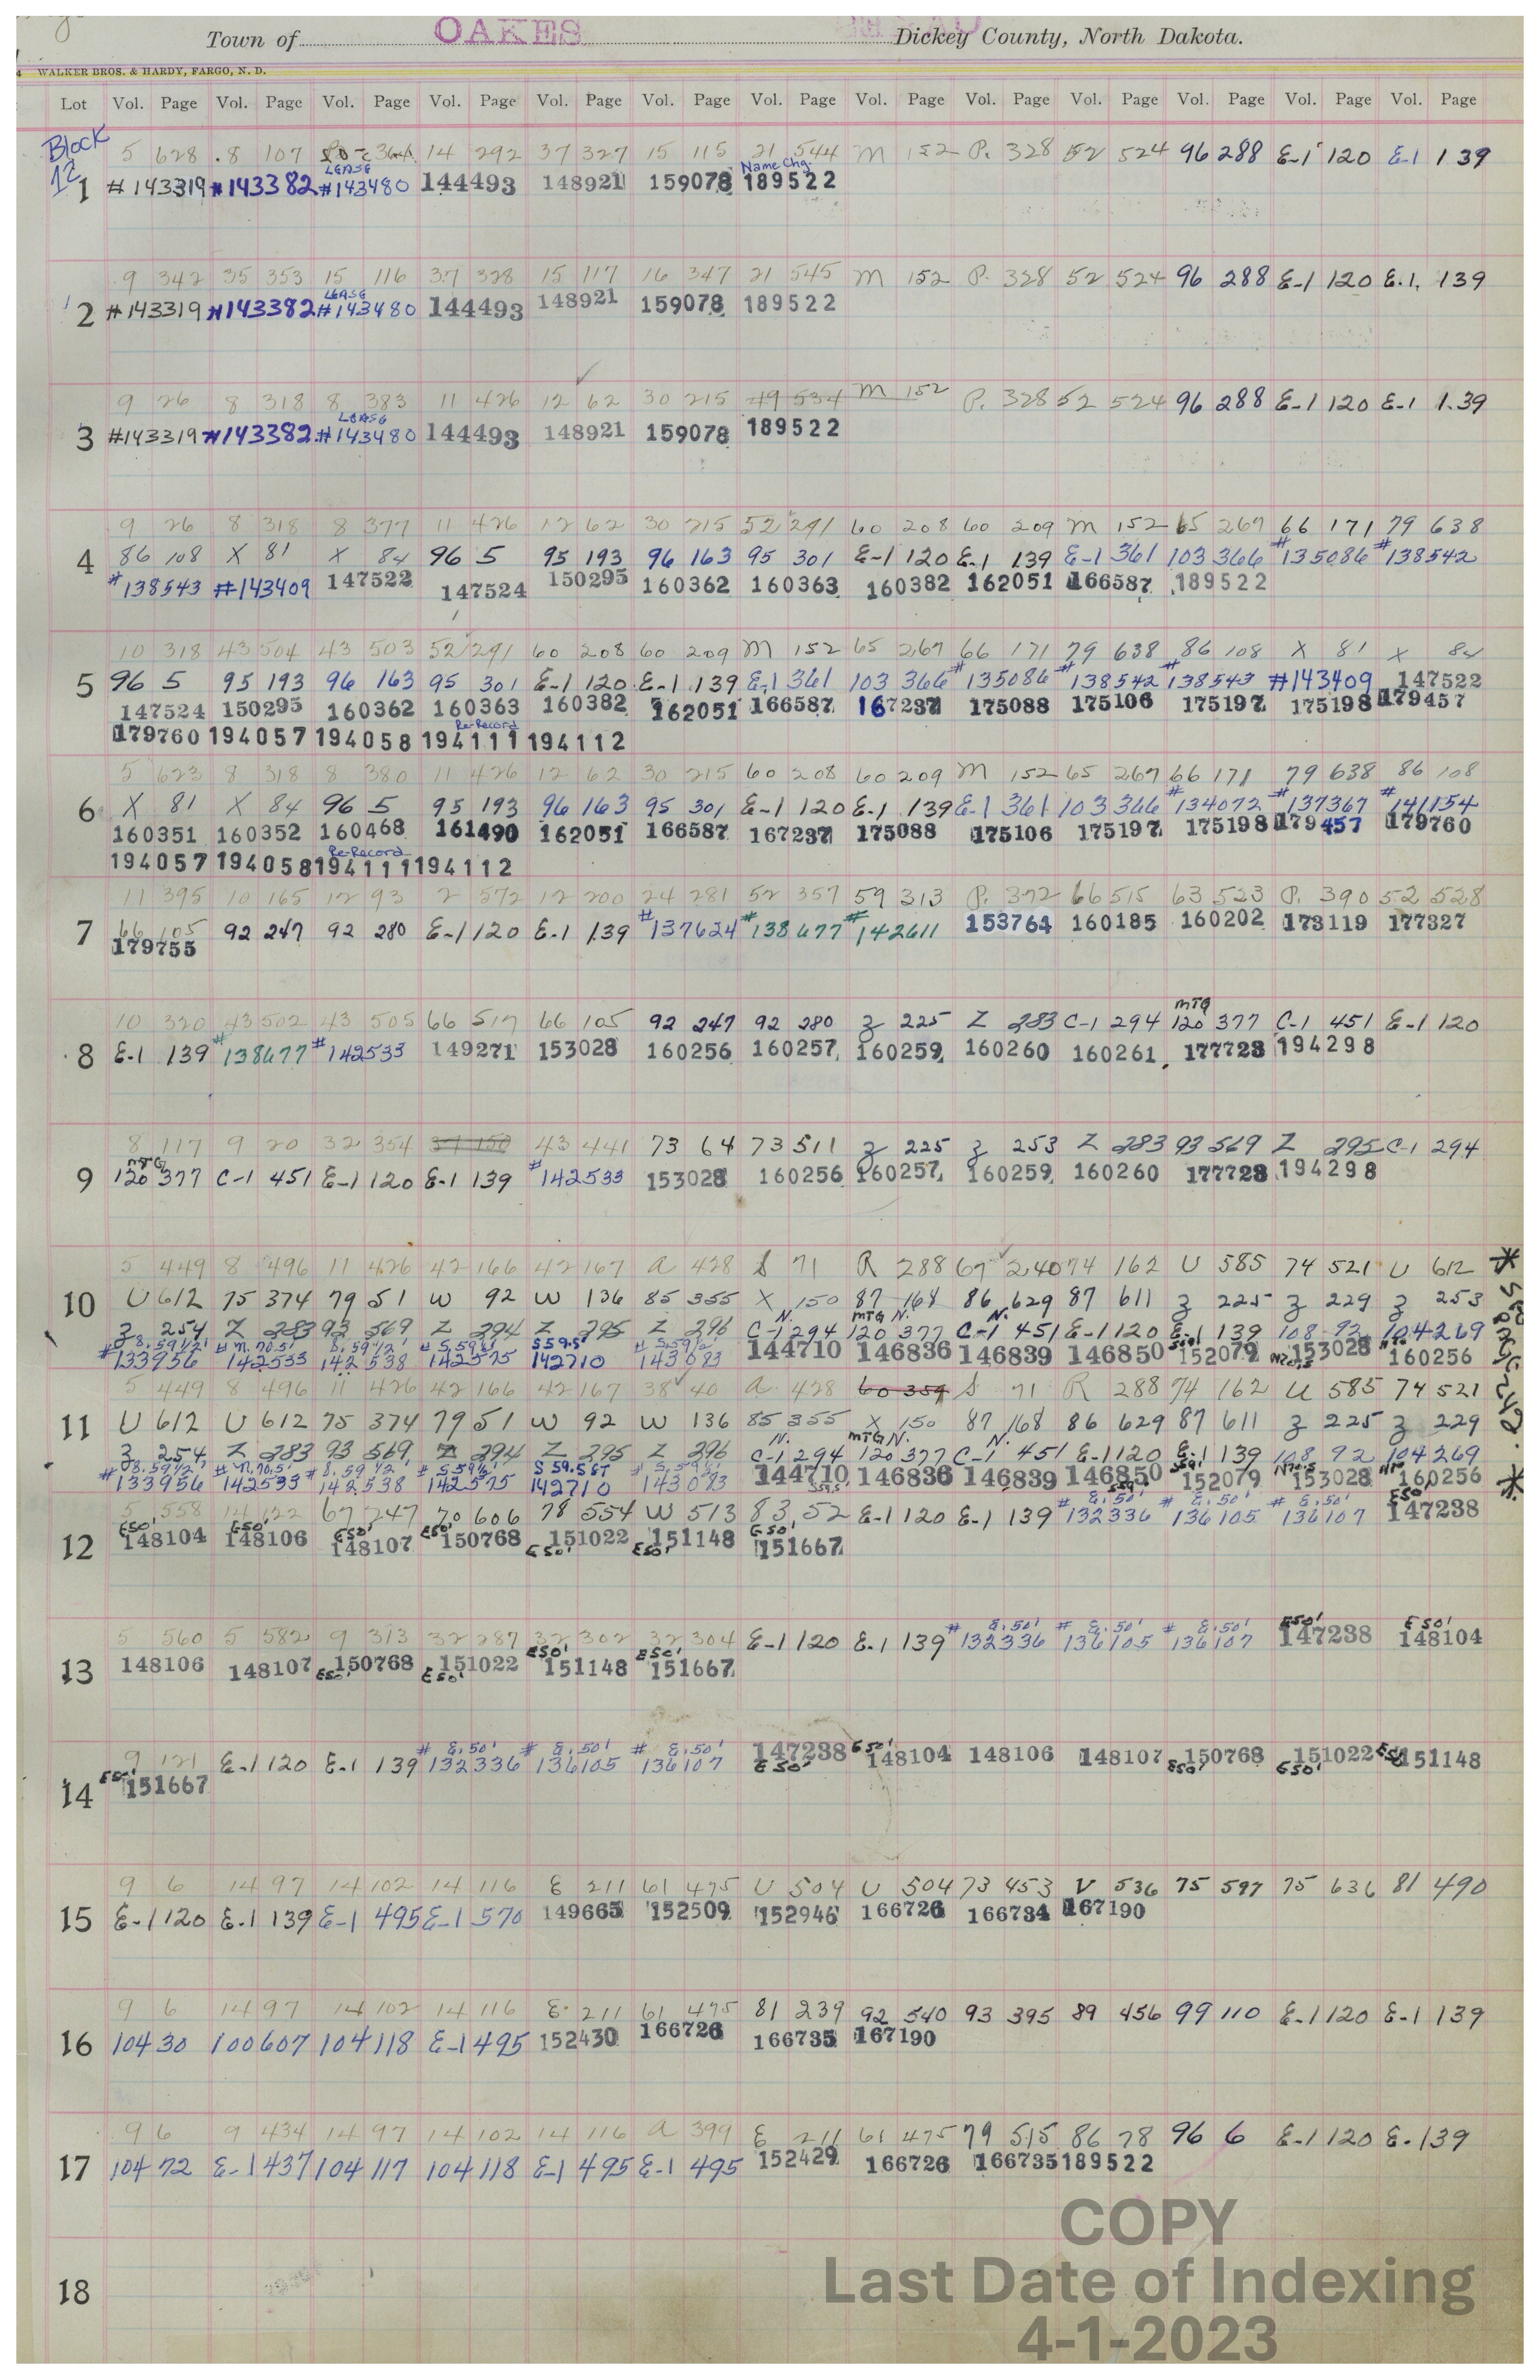 Town of OAKES Dickey County, North Dakota.
WALKER BROS. & HARDY, FARGO, N. D.
Lot Vol. Page Vol. Page Vol. Page Vol. Page Vol. Page Vol. Page Vol. Page Vol. Page Vol. Page Vol. Page Vol. Page Vol. Page Vol. Page
Block 12
5 628 8 107 14 292 37 327 15 115 21 544 M 152 P. 328 52 524 96 288 E-1 120 E-1 139
LEASE Name Chg.
1 #143319 #143382 #143480 144493 148921 159078 189522
9 342 35 353 15 116 37 328 15 117 16 347 21 545 M 152 P. 328 52 524 96 288 E-1 120 E.1. 139
LEASE
2 #143319 #143382 #143480 144493 148921 159078 189522
9 26 8 318 8 383 11 426 12 62 30 215 49 534 M 152 P. 328 52 524 96 288 E-1 120 E-1 139
LEASE
3 #143319 #143382 #143480 144493 148921 159078 189522
9 26 8 318 8 377 11 426 12 62 30 215 52 291 60 208 60 209 M 152 65 267 66 171 79 638
4 86 108 X 81 X 84 96 5 95 193 96 163 95 301 E-1 120 E-1 139 E-1 361 103 366 #135086 #138542
#138543 #143409 147522 147524 150295 160362 160363 160382 162051 166587 189522
10 318 43 504 43 503 52 291 60 208 60 209 M 152 65 267 66 171 79 638 86 108 X 81 X 84
5 96 5 95 193 96 163 95 301 E-1 120 E-1 139 E-1 361 103 366 #135086 #138542 #138543 #143409 147522
147524 150295 160362 160363 160382 162051 166587 167237 175088 175106 175197 175198 179457
Re-Record
179760 194057 194058 194111 194112
5 623 8 318 8 380 11 426 12 62 30 215 60 208 60 209 M 152 65 267 66 171 79 638 86 108
6 X 81 X 84 96 5 95 193 96 163 95 301 E-1 120 E-1 139 E-1 361 103 366 #134072 #137367 #141154
160351 160352 160468 161490 162051 166587 167237 175088 175106 175197 175198 179457 179760
Re-Record
194057 194058 194111 194112
11 395 10 165 12 93 2 572 12 200 24 281 52 357 59 313 P. 372 66 515 63 523 P. 390 52 528
7 66 105 92 247 92 280 E-1 120 E-1 139 #137624 #138677 #142611 153764 160185 160202 173119 177327
179755
MTG
10 320 43 502 43 505 66 517 66 105 92 247 92 280 Z 225 Z 283 C-1 294 120 377 C-1 451 E-1 120
8 E-1 139 #138677 #142533 149271 153028 160256 160257 160259 160260 160261 177728 194298
8 117 9 20 32 354 37 150 43 441 73 64 73 511 Z 225 Z 253 Z 283 93 569 Z 295 C-1 294
MTG
9 120 377 C-1 451 E-1 120 E-1 139 #142533 153028 160256 160257 160259 160260 177728 194298
5 449 8 496 11 426 42 166 42 167 a 428 S 71 R 288 67 240 74 162 U 585 74 521 U 612
10 U 612 75 374 79 51 W 92 W 136 85 355 X 150 87 168 86 629 87 611 Z 225 Z 229 Z 253
N. MTG N. N.
Z 254 Z 283 93 569 Z 294 Z 295 Z 296 C-1 294 120 377 C-1 451 E-1 120 E-1 139 108 92 104 269
#S. 59 1/2' # N. 70.5' S. 59 1/2' # S. 59 1/2' S 59.5' # S. 59 1/2'
133956 142533 142538 142575 142710 143083 144710 146836 146839 146850 152079 153028 160256
5 449 8 496 11 426 42 166 42 167 38 40 a 428 60 359 S 71 R 288 74 162 U 585 74 521
11 U 612 U 612 75 374 79 51 W 92 W 136 85 355 X 150 87 168 86 629 87 611 Z 225 Z 229
N. MTG N. N.
Z 254 Z 283 93 569 Z 294 Z 295 Z 296 C-1 294 120 377 C-1 451 E-1 120 E-1 139 108 92 104 269
# S. 59 1/2' # N. 70.5' # S. 59 1/2' # S. 59 1/2' S 59.5 FT # S. 59 1/2'
133956 142533 142538 142575 142710 143083 144710 146836 146839 146850 152079 153028 160256
5 558 14 122 67 247 70 606 78 554 W 513 83 52 E-1 120 E-1 139 # E. 50' 132336 # E. 50' 136105 # E. 50' 136107 E 50' 147238
12 E50' 148104 E50' 148106 E50' 148107 E50' 150768 E50' 151022 E50' 151148 E50' 151667
5 560 5 582 9 313 32 287 32 302 32 304 E-1 120 E-1 139 # E. 50' 132336 # E. 50' 136105 # E. 50' 136107 E50' 147238 E 50' 148104
13 148106 148107 E50' 150768 E50' 151022 E50' 151148 E50' 151667
9 121 E-1 120 E-1 139 # E. 50' 132336 # E. 50' 136105 # E. 50' 136107 147238 E 50' E50' 148104 148106 148107 E50' 150768 E50' 151022 E50' 151148
14 E50' 151667
9 6 14 97 14 102 14 116 E 211 61 475 U 504 U 504 73 453 V 536 75 597 75 636 81 490
15 E-1 120 E-1 139 E-1 495 E-1 570 149665 152509 152946 166726 166734 167190
9 6 14 97 14 102 14 116 E. 211 61 475 81 239 92 540 93 395 89 456 99 110 E-1 120 E-1 139
16 104 30 100 607 104 118 E-1 495 152430 166726 166735 167190
9 6 9 434 14 97 14 102 14 116 a 399 E 211 61 475 79 515 86 78 96 6 E-1 120 E. 139
17 104 72 E-1 437 104 117 104 118 E-1 495 E-1 495 152429 166726 166735 189522
18
COPY
Last Date of Indexing
4-1-2023